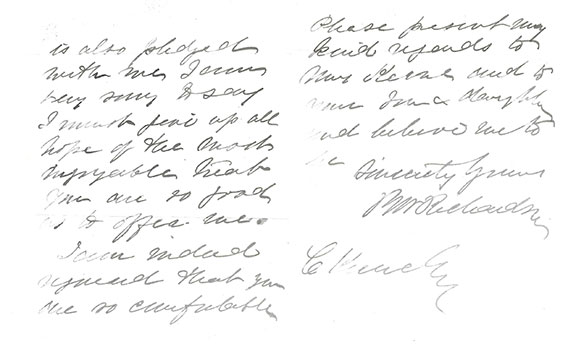 is also pledged
with me, I am
very sorry to say
I must give up all
hope of the most
enjoyable treat
you are so good
as to offer me.
I am indeed
rejoiced that you
are so comfortable
Please present my
kind regards to
Mrs and to
your Son & daughter
and believe me to
be
Sincerely Yours
BW Richardson
C